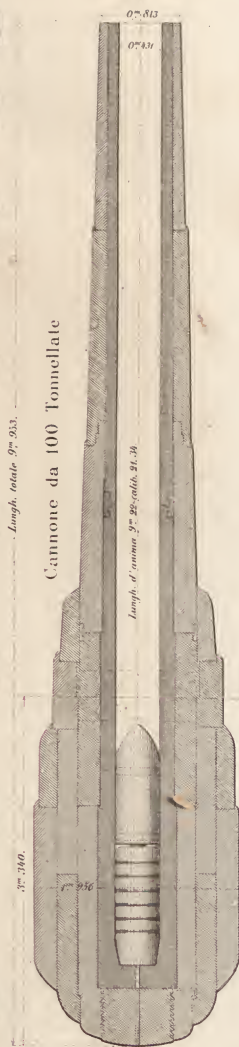 0.ᵐ 813
0.ᵐ 431
Lungh. totale 9.ᵐ 953.
Cannone da 100 Tonnellate
Lungh. d'anima 9.ᵐ 22=calib. 21.34
3.ᵐ 340.
1.ᵐ 956